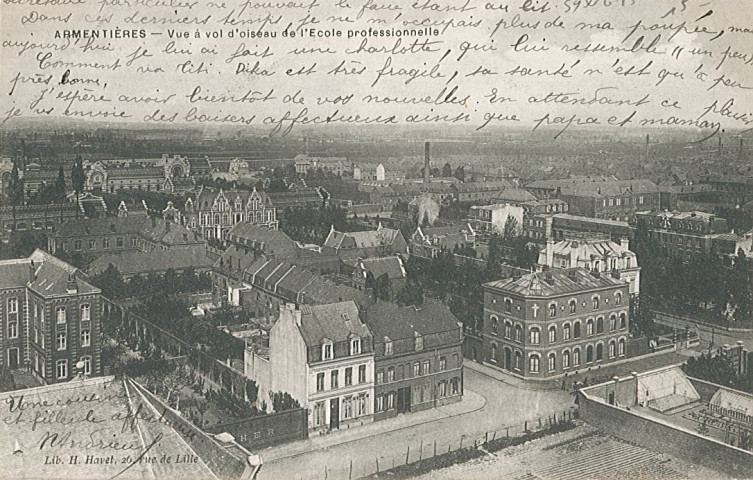 secrétaire particulier ne pouvait le faire étant au lit.
Dans ces derniers temps je ne m'occupais plus de ma poupée, mais
ARMENTIÈRES — Vue à vol d'oiseau de l'Ecole professionnelle
aujourd'hui je lui ai fait une charlotte, qui lui ressemble (un peu)
Comment va Titi. Dika est très fragile, sa santé n'est qu'à peu
près bonne,
J'espère avoir bientôt de vos nouvelles. En attendant ce plaisir
je vous envoie des baisers affectueux ainsi que papa et maman.
Une cousine
et filleule affect
Lib. H. Havet, 26, rue de Lille
HER